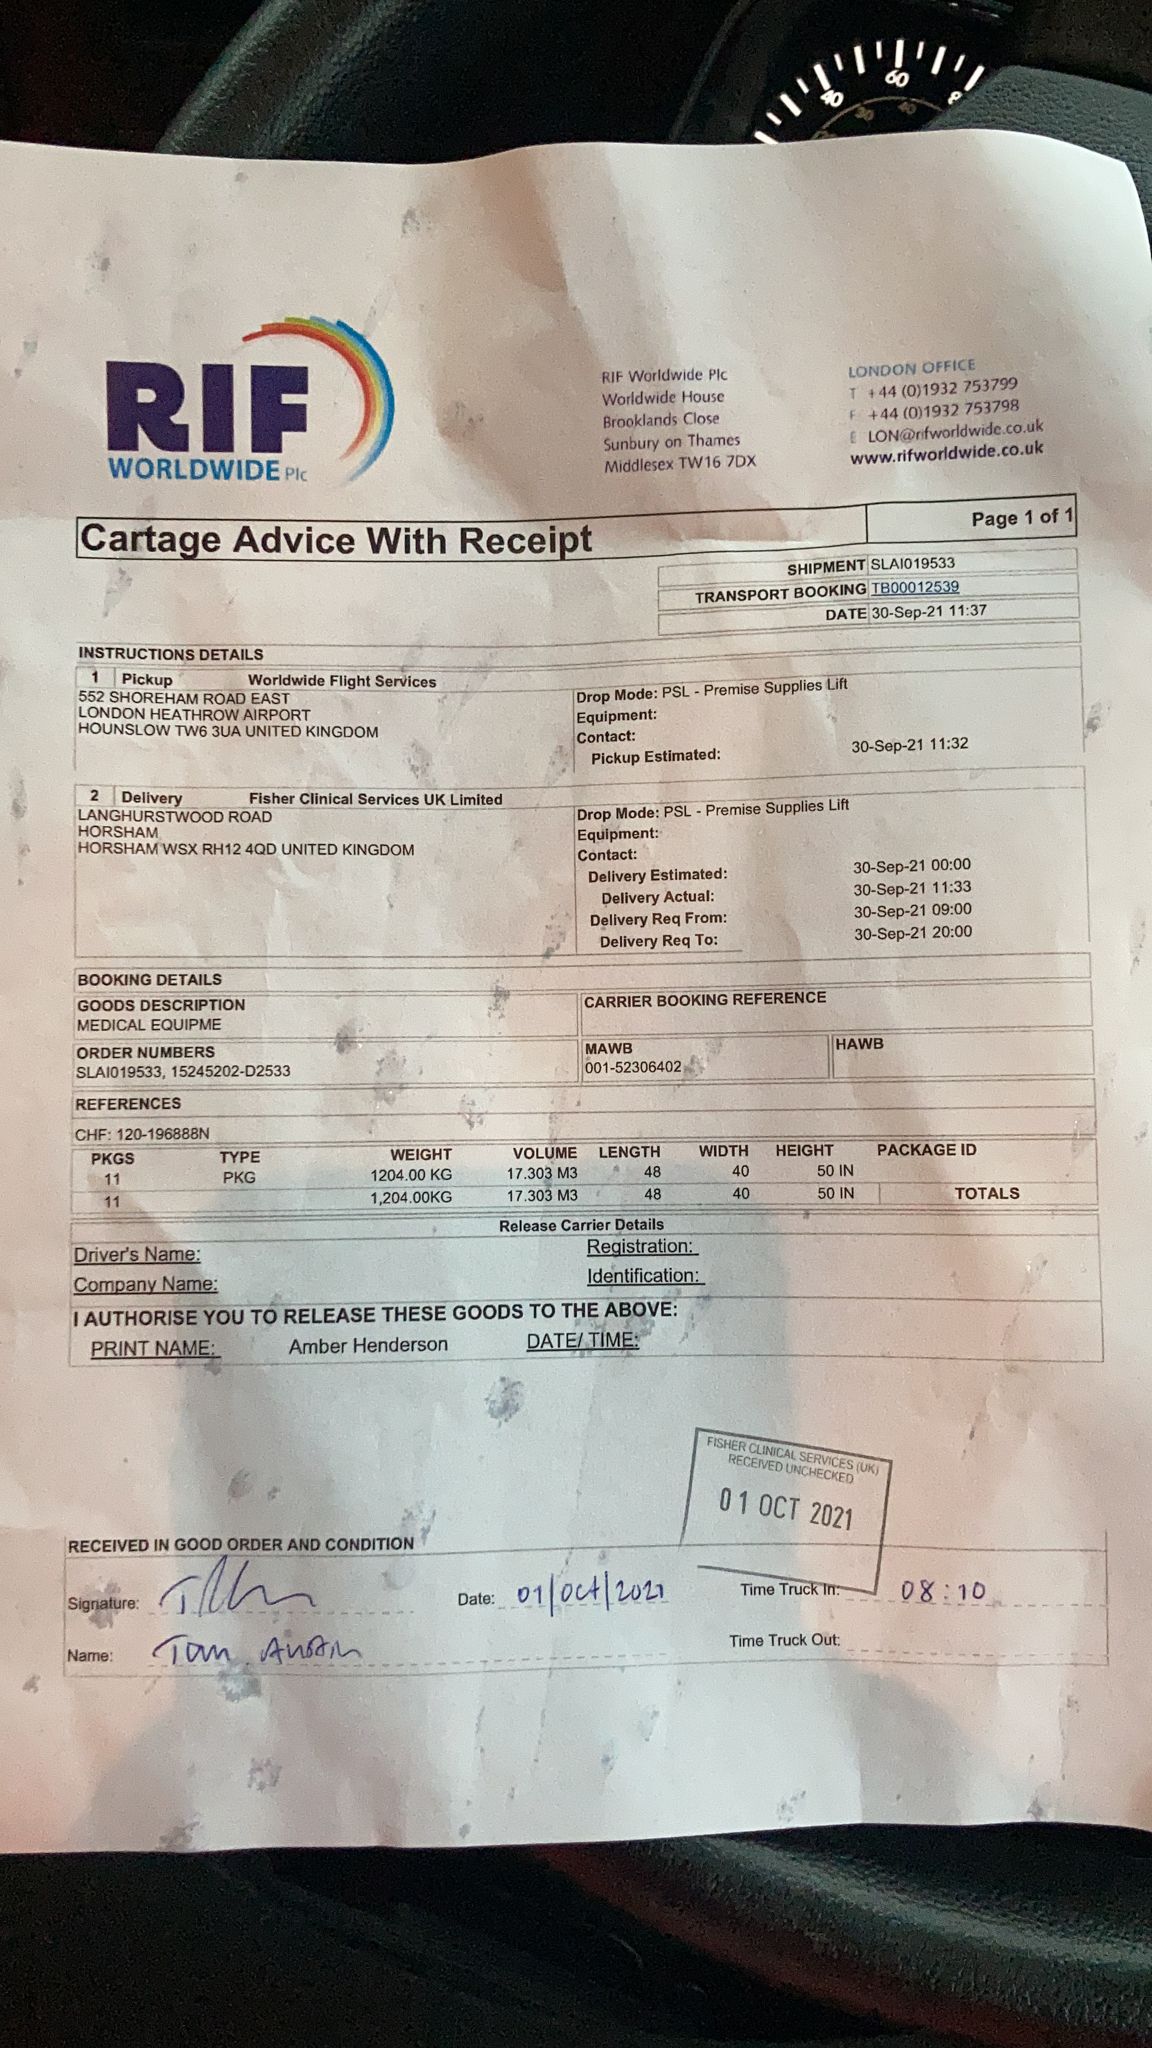 80
60
40
30
40
RIF
WORLDWIDE Plc
RIF Worldwide Plc
Worldwide House
Brooklands Close
Sunbury on Thames
Middlesex TW16 7DX
LONDON OFFICE
T +44 (0)1932 753799
F +44 (0)1932 753798
E LON@rifworldwide.co.uk
www.rifworldwide.co.uk
Cartage Advice With Receipt
Page 1 of 1
SHIPMENT SLAI019533
TRANSPORT BOOKING TB00012539
DATE 30-Sep-21 11:37
INSTRUCTIONS DETAILS
1 Pickup Worldwide Flight Services
552 SHOREHAM ROAD EAST
LONDON HEATHROW AIRPORT
HOUNSLOW TW6 3UA UNITED KINGDOM
Drop Mode: PSL - Premise Supplies Lift
Equipment:
Contact:
Pickup Estimated: 30-Sep-21 11:32
2 Delivery Fisher Clinical Services UK Limited
LANGHURSTWOOD ROAD
HORSHAM
HORSHAM WSX RH12 4QD UNITED KINGDOM
Drop Mode: PSL - Premise Supplies Lift
Equipment:
Contact:
Delivery Estimated: 30-Sep-21 00:00
Delivery Actual: 30-Sep-21 11:33
Delivery Req From: 30-Sep-21 09:00
Delivery Req To: 30-Sep-21 20:00
BOOKING DETAILS
GOODS DESCRIPTION
MEDICAL EQUIPME
CARRIER BOOKING REFERENCE
ORDER NUMBERS
SLAI019533, 15245202-D2533
MAWB
001-52306402
HAWB
REFERENCES
CHF: 120-196888N
PKGS TYPE WEIGHT VOLUME LENGTH WIDTH HEIGHT PACKAGE ID
11 PKG 1204.00 KG 17.303 M3 48 40 50 IN
11 1,204.00KG 17.303 M3 48 40 50 IN TOTALS
Release Carrier Details
Driver's Name: Registration:
Company Name: Identification:
I AUTHORISE YOU TO RELEASE THESE GOODS TO THE ABOVE:
PRINT NAME: Amber Henderson DATE/ TIME:
FISHER CLINICAL SERVICES (UK)
RECEIVED UNCHECKED
01 OCT 2021
RECEIVED IN GOOD ORDER AND CONDITION
Signature: Date: 01/Oct/2021 Time Truck In: 08:10
Name: Tom Time Truck Out: